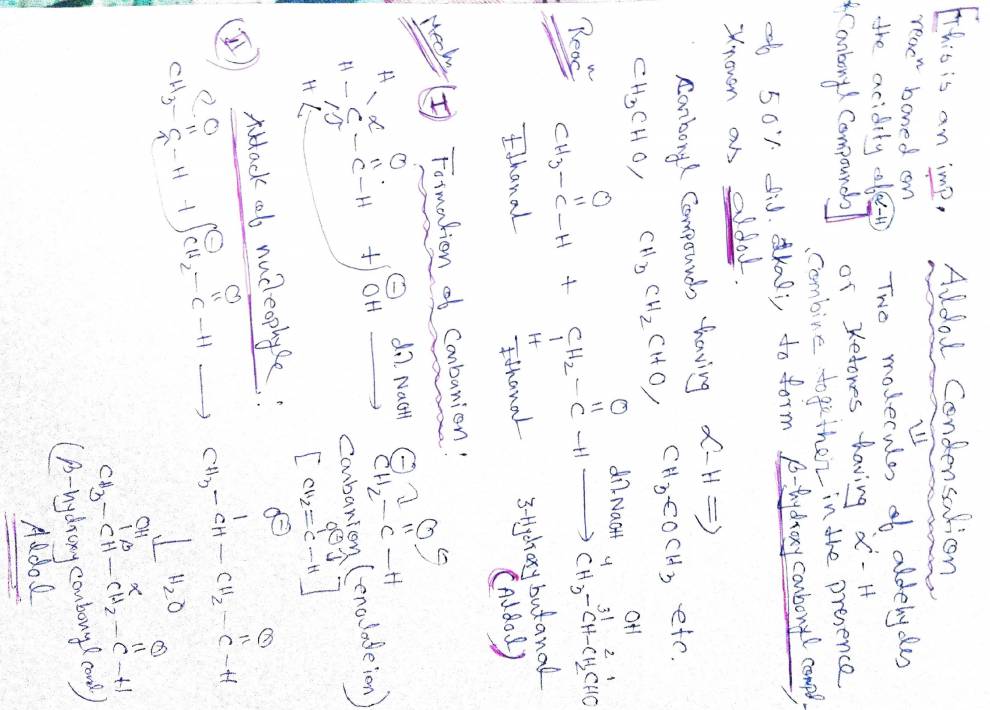 Aldol Condensation
[This is an imp.
reacn based on
the acidity of α-H
of Carbonyl Compounds]
Two molecules of aldehydes
or Ketones having α-H
combine together in the presence
of 50% dil. alkali, to form β-hydroxy carbonyl compd.
known as aldol.
Carbonyl Compounds having α-H ⇒
CH3CHO, CH3CH2CHO, CH3COCH3 etc.
Reacn
CH3-C-H + CH2-C-H → CH3-CH-CH2CHO
O
H
O
dil NaOH
OH
4 3 2 1
Ethanal
Ethanal
3-Hydroxybutanal
(Aldol)
Mech (I) Formation of Carbanion:
H-C-C-H + ⊖OH → ⊖CH2-C-H
H
α
H
O
dil NaOH
O
Carbanion (enolate ion)
[CH2=C-H]
O⊖
(II) Attack of nucleophile:
CH3-C-H + ⊖CH2-C-H → CH3-CH-CH2-C-H
O
O
O⊖
O
↓ H2O
OH
O
CH3-CH-CH2-C-H
β α
(β-hydroxy carbonyl comd.)
Aldol